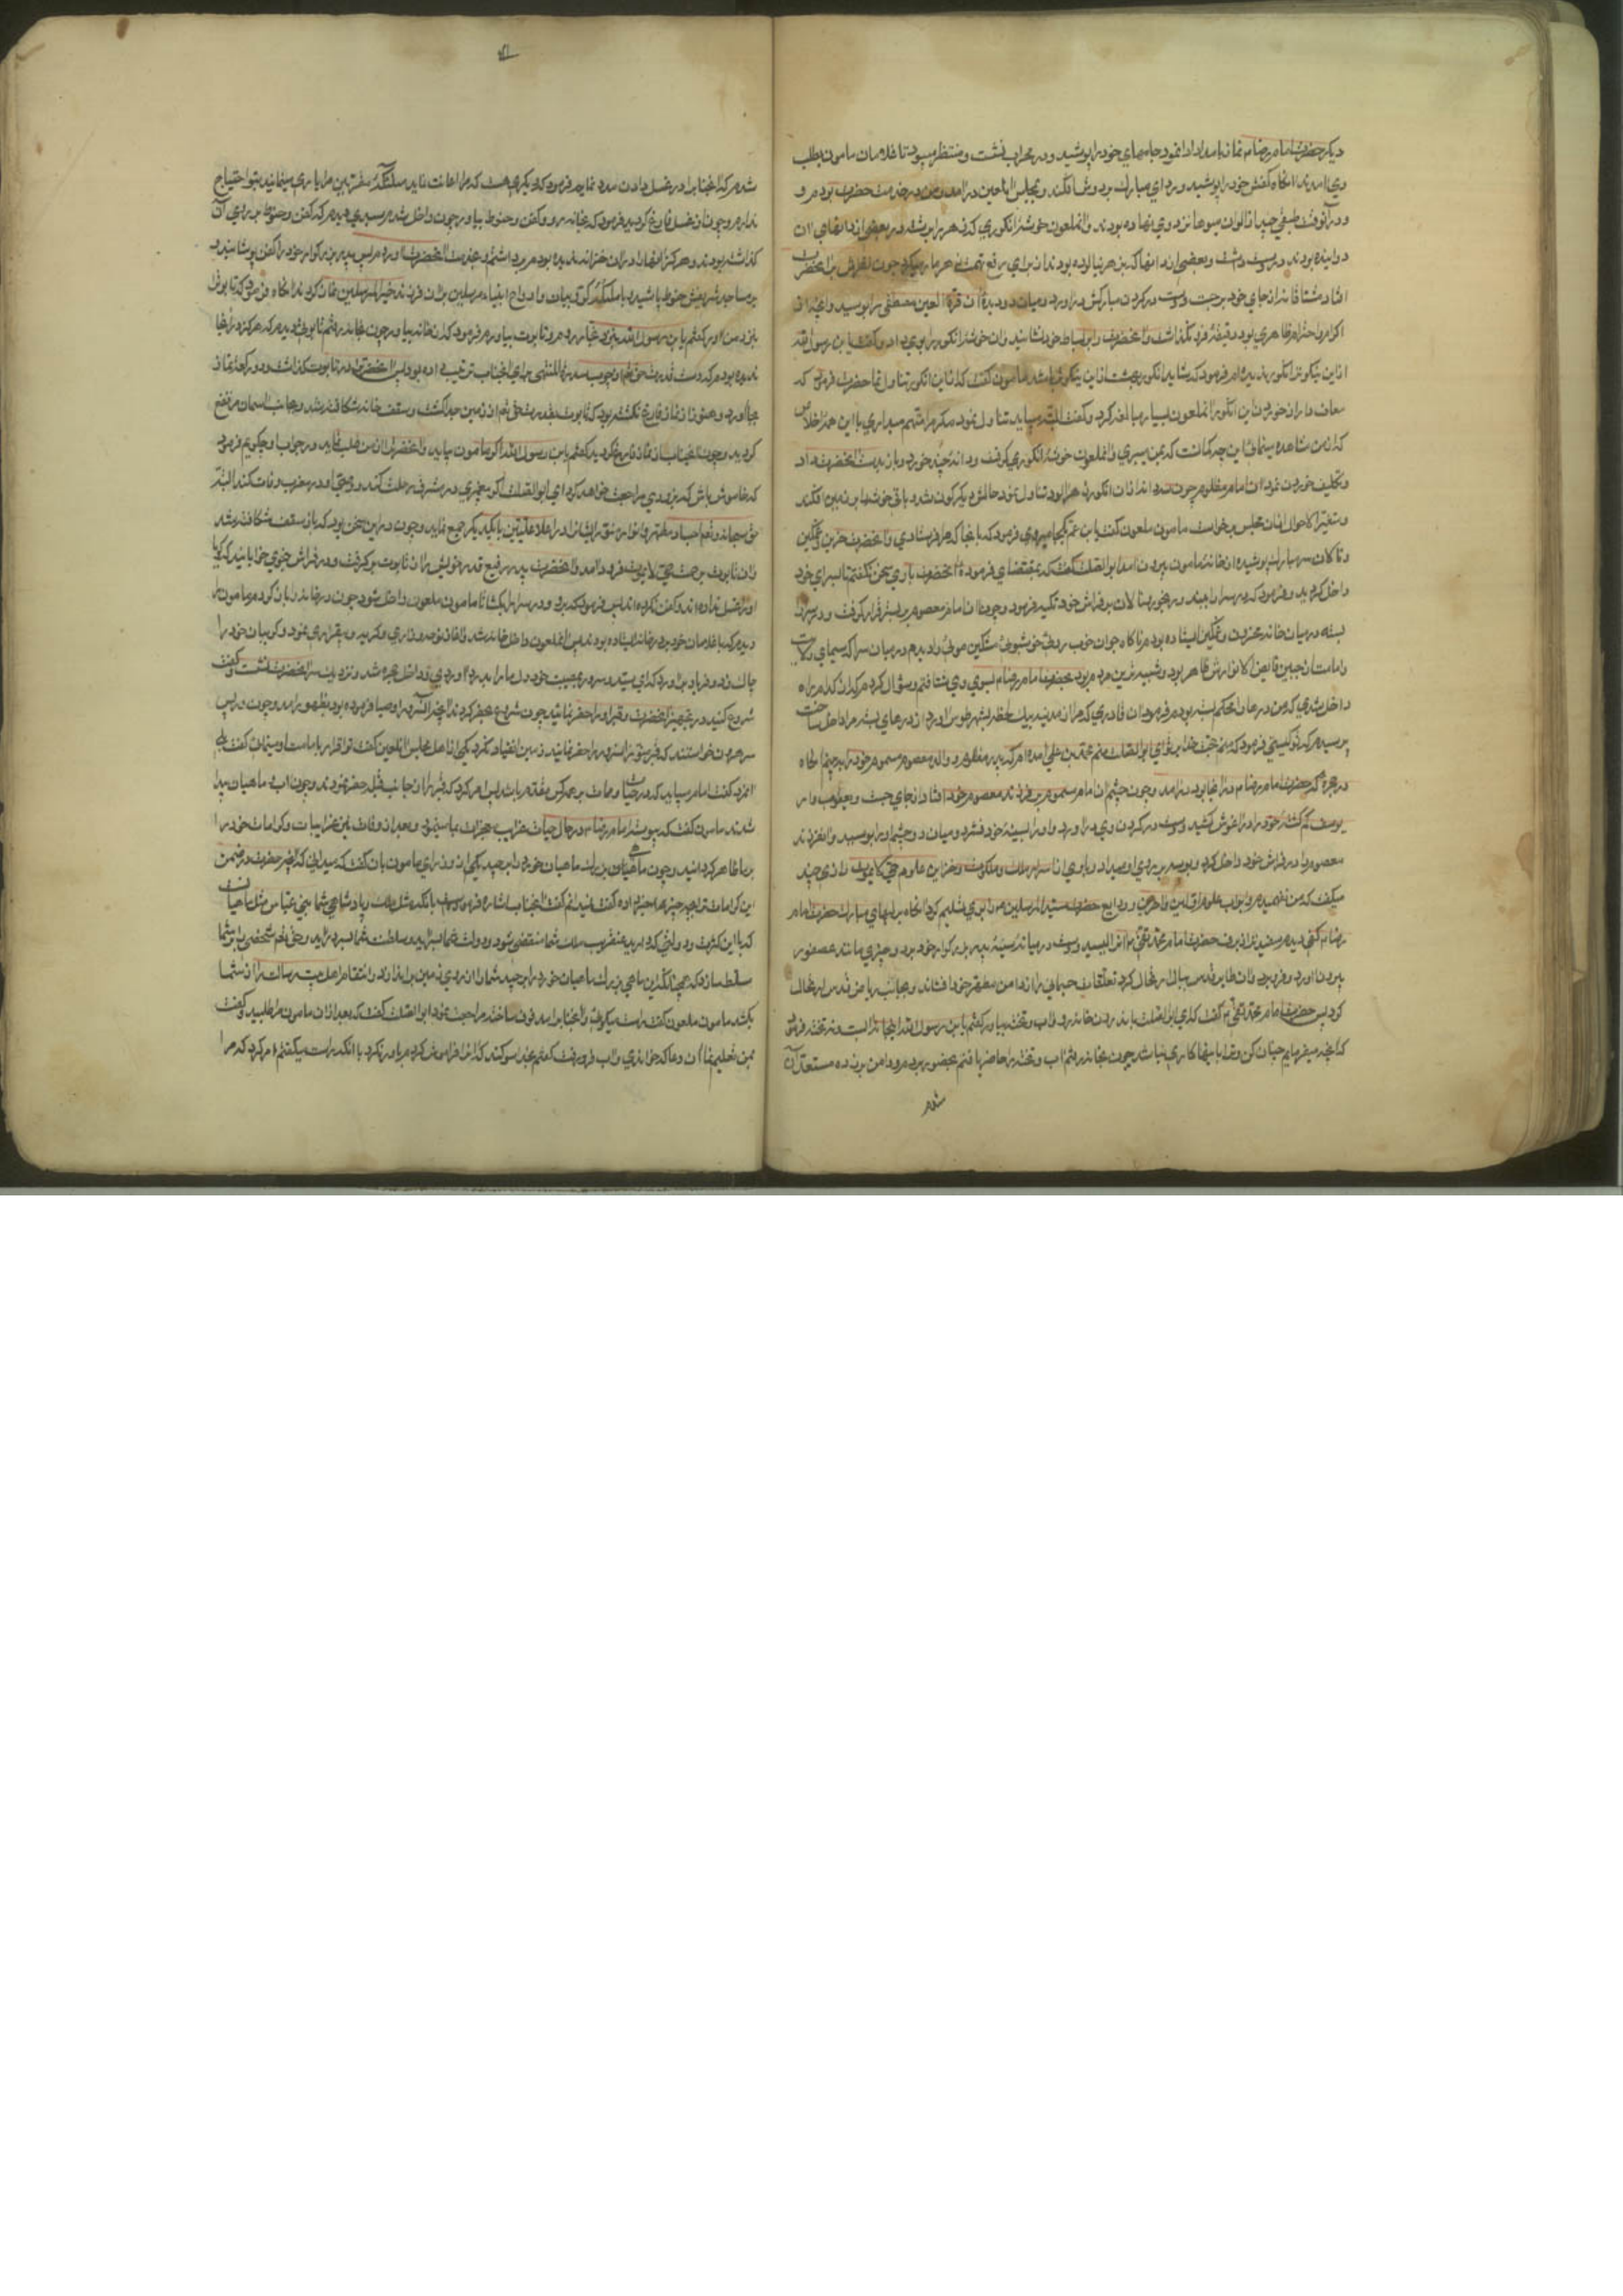 دیکر حضرت امام رضا م نماز بامداد ادا نمود جامهای خود را پوشید و در محراب نشست و منتظر میبود تا غلامان مامون بطلب
وی امدند انکاه کفش خود را پوشید و ردای مبارک بر دوش افکند و بمجلس ان لعین در امد و من در خدمت حضرت بودم و
در آنوقت طبقی چند از الوان میوها نزد وی نهاده بودند و انملعون خوشه انکوری که زهر را برشته در بعضی از دانهای ان
دوانیده بودند در دست داشت و بعضی از دانها که بزهر نیالوده بودند از برای رفع تهمت زهر مار میکرد چون نظرش بر انحضرت
افتاد مشتاقانه از جای خود برجست و دست در کردن مبارکش در اورد و میان دو دیده ان قرة العین مصطفی را بوسید و انچه از
اکرام و احترام ظاهری بود دقیقه فرو نکذاشت و انحضرت را بر بساط خود نشانید و ان خوشه انکور را بوی داد و کفت یا بن رسول الله
از این نیکوتر انکور ندیده‌ام فرمود که شاید انکور بهشت از این نیکوتر باشد مامون کفت که از این انکور تناول نما حضرت فرمود که
معاف دار از خوردن این انکور انملعون بسیار مبالغه کرد و کفت البته میباید تناول نمود مکر مرا متهم میداری با این همه اخلاص
که از من مشاهده مینمائی این چه کمانست که بمن میبری و انملعون خوشه انکوری کرفت و دانه چند خورد و باز بدست انحضرت داد
و تکلیف خوردن نمود ان امام مظلوم چون سه دانه از ان انکور زهر الود تناول نمود حالش دیکرکون شد و باقی خوشه را بر زمین افکند
و متغیر الاحوال از ان مجلس برخواست مامون ملعون کفت یا بن عم بکجا میروی فرمود که بانجا که مرا فرستادی و انحضرت حزین و غمکین
و نالان سر مبارک پوشیده از خانه مامون بیرون امد ابوالصلت کفت که بمقتضای فرموده انحضرت با وی سخن نکفتم تا بسرای خود
داخل کردید و فرمود که در سرا را ببند و رنجور و نالان بر فراش خود تکیه فرمود و چون ان امام معصوم بر بستر قرار کرفت و در سرا را
بسته در میان خانه محزون و غمکین ایستاده بودم ناکاه جوان خوب روی خوشبوی مشکین موئی را دیدم در میان سرا که سیمای ولایت
و امامت از جبین فایض الانوارش ظاهر بود و شبیه ترین مردم بود بحضرت امام رضا م بسوی وی شتافتم و سؤال کردم که از کدام راه
داخل شدی که من درها را محکم بسته بودم فرمود ان قادری که مرا از مدینه بیک لحظه بشهر طوس اورد از درهای بسته مرا داخل ساخت
پرسیدم که تو کیستی فرمود که منم حجت خدا بر تو ای ابوالصلت منم محمد بن علی امده ام که پدر مظلوم و والد معصوم مسموم خود را ببینم انکاه
در حجرهٔ که حضرت امام رضا م در انجا بود در امد و چون چشم ان امام مسموم بر فرزند معصوم خود افتاد از جای جست و یعقوب وار
یوسف کم کشته خود را در اغوش کشید و دست در کردن وی در اورد و او را بسینه خود فشرد و میان دو چشم او را بوسید و ان فرزند
معصوم را در فراش خود داخل کرد و بوسه بر روی او میداد و با وی از اسرار ملک و ملکوت و خزاین علوم حی لا یموت رازی چند
میکفت که من نفهمیدم و ابواب علوم اولین و اخرین و ودایع حضرت سید المرسلین م را بوی تسلیم کرد انکاه بر لبهای مبارک حضرت امام
رضا م کفی دیدم سفیدتر از برف حضرت امام محمد تقی م انرا لیسید و دست در میان سینه پدر بزرکوار خود برد و چیزی مانند عصفور
بیرون اورد و فرو برد و ان طایر قدس ببال ارتحال کرد تعلقات جسمانی را از دامن مطهر خود افشاند و بجانب ریاض قدس ارتحال
کرد پس حضرت امام محمد تقی م کفت که ای ابوالصلت باندرون خانه رو و اب و تخته بیاور کفتم یا بن رسول الله انجا نه ابست و نه تخته فرمود
که انچه میفرمایم چنان کن و ترا باینها کاری نباشد چون بخانه رفتم اب و تخته را حاضر یافتم بحضور بردم و دامن بر زده مستعد آن
شدم
شدم که انجناب را در غسل دادن مدد نمایم فرمود که دیکری هست که مرا اعانت نماید ملئکه مقربین مرا یاری مینمایند بتو احتیاج
ندارم و چون از غسل فارغ کردید فرمود که بخانه رو و کفن و حنوط بیاور چون داخل شدم سبدی دیدم که کفن و حنوط بر روی آن
کذاشته بودند و هرکز انها را در ان خزانه ندیده بودم برداشتم و بخدمت انحضرت اوردم پس پدر بزرکوار خود را کفن پوشانید و
بر مساجد شریفش حنوط پاشید و با ملئکه کروبیان و ارواح انبیاء و مرسلین بر ان فرزند خیر المرسلین نماز کردند انکاه فرمود که تابوت را
بنزد من اور کفتم یا بن رسول الله بنزد نجار روم و تابوت بیاورم فرمود که از خانه بیاور چون بخانه رفتم تابوتی دیدم که هرکز در انجا
ندیده بودم که دست قدرت حق تعالی از چوب سدرة المنتهی برای انجناب ترتیب داده بود پس انحضرت را در تابوت کذاشت و دو رکعت نماز
بجا آورد و هنوز از نماز فارغ نکشته بود که تابوت بقدرت حق تعالی از زمین جدا کشت و سقف خانه شکافته شد و بجانب اسمان مرتفع
کردید و چون انجناب از نماز فارغ کردید کفتم یا بن رسول الله اکر مامون بیاید و انحضرت را از من طلب نماید در جواب او چکویم فرمود
که خاموش باش که بزودی مراجعت خواهد کرد ای ابوالصلت اکر پیغمبری در مشرق رحلت کند و وصی او در مغرب وفات کند البته
حق سبحانه و تعالی اجساد مطهر و انوار منور ایشان را در اعلا علیین با یکدیکر جمع نماید و چون در این سخن بود که باز سقف شکافته شد
و ان تابوت برحمت حی لا یموت فرود امد و انحضرت پدر رفیع قدر خویش را از تابوت برکرفت و در فراش بنحوی خوابانید که کویا
او را غسل نداده اند و کفن نکرده اند پس فرمود که برو و در سرا را بکشا تا مامون ملعون داخل شود چون در خانه را باز کردم مامون را
دیدم که با غلامان خود بر در خانه ایستاده بودند پس انملعون داخل خانه شد و اغاز نوحه و زاری و کریه و بیقراری نمود و کریبان خود را
چاک زد و فریاد بر اورد که ای سید و سرور بمصیبت خود دل ما را بدرد اوردی و داخل حجره شد و نزدیک سر انحضرت نشست و کفت
شروع کنید در تجهیز انحضرت و قبر او را حفر نمائید چون شروع بحفر کردند انچه ان سرور اوصیا فرموده بود بظهور امد و چون در پس
سر هرون خواستند که قبر منور ان سرور را حفر نمایند زمین انقیاد نکرد یکی از اهل مجلس ان لعین کفت تو اقرار بامامت او مینمائی کفت بلی
انمرد کفت امام میباید که در حیات و ممات بر همه کس مقدم باشد پس امر کرد که قبر را از جانب قبله حفر نمودند و چون اب و ماهیان پیدا
شدند مامون کفت که پیوسته امام رضا م در حال حیات غرایب معجزات بما مینمود و بعد از وفات نیز غرایب و کرامات خود را
بر ما ظاهر کردانید و چون ماهی بزرک ماهیان خورد را برچید یکی از وزرای مامون بان کفت که میدانی که انحضرت در ضمن
این کرامات ترا بچه چیز خبر داده کفت نمیدانم کفت انجناب اشاره فرموده است بانکه مثل ملک و پادشاهی شما بنی عباس مثل ماهیانست
که با این کثرت و دولتی که دارید عنقریب ملک شما منقضی شود و دولت شما بسر اید و سلطنت شما بسر اید و حق تعالی شخصی را بر شما
مسلط سازد که همچنانکه این ماهی بزرک ماهیان خورد را برچید شما را از روی زمین بر اندازد و انتقام اهل بیت رسالت را از شما
بکشد مامون ملعون کفت راست میکوئی و انجناب را مدفون ساخته مراجعت نمود ابوالصلت کفت که بعد از ان مامون مرا طلبید و کفت
بمن تعلیم نما ان دعا که خواندی و اب فرو رفت کفتم بخدا سوکند که انرا فراموش کردم باور نکرد با انکه راست میکفتم امر کرد که مرا